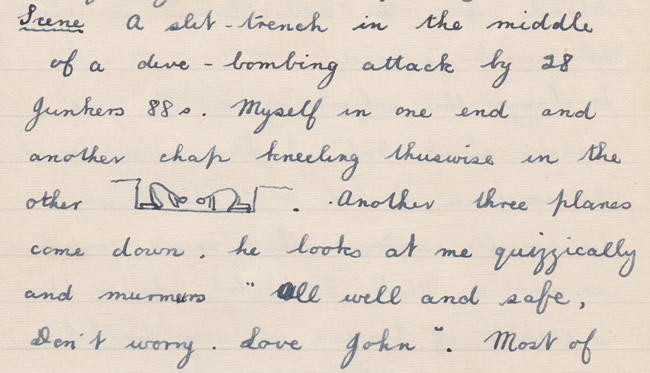 Scene A slit-trench in the middle
of a dive-bombing attack by 28
Junkers 88s. Myself in one end and
another chap kneeling thuswise in the
other . Another three planes
come down, he looks at me quizzically
and murmurs "All well and safe,
Don't worry. Love John". Most of